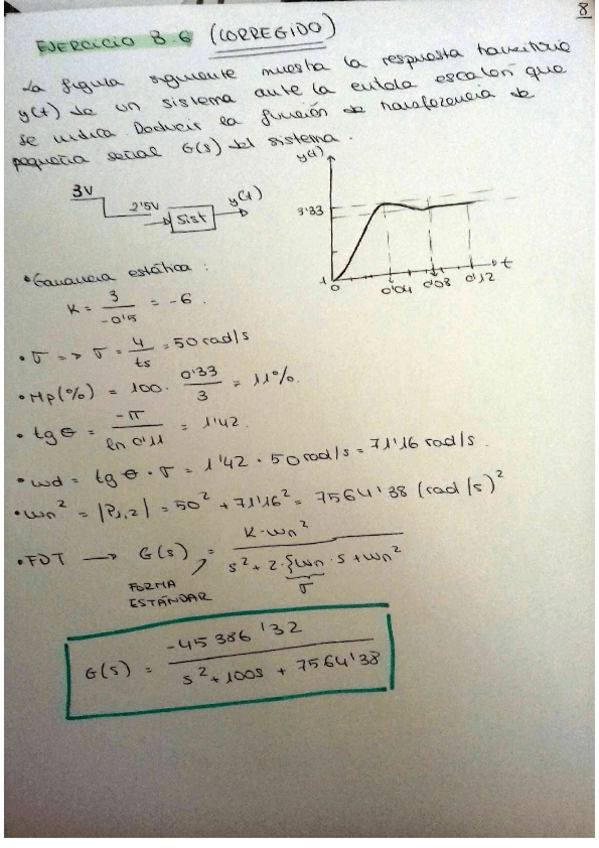 8
EJERCICIO B.6 (CORREGIDO)
La figura siguiente muestra la respuesta transitoria
y(t) de un sistema ante la entrada escalón que
se indica. Deducir la función de transferencia de
pequeña señal G(s) del sistema.
3V
2'5V
Sist
y(t)
y(t)
3'33
-1
0
0'04
0'08
0'12
t
• Ganancia estática :
K = 3 / -0'5 = -6.
• σ => σ = 4 / ts = 50 rad/s
• Mp(%) = 100 · 0'33 / 3 = 11%.
• tg θ = -π / ln 0'11 = 1'42.
• wd = tg θ · σ = 1'42 · 50 rad/s = 71'16 rad/s.
• wn² = |P1,2| = 50² + 71'16² = 7564'38 (rad/s)²
• FDT → G(s) = K·wn² / s² + 2·ξwn·s + wn²
FORMA
ESTÁNDAR
σ
G(s) = -45386'32 / s² + 100s + 7564'38